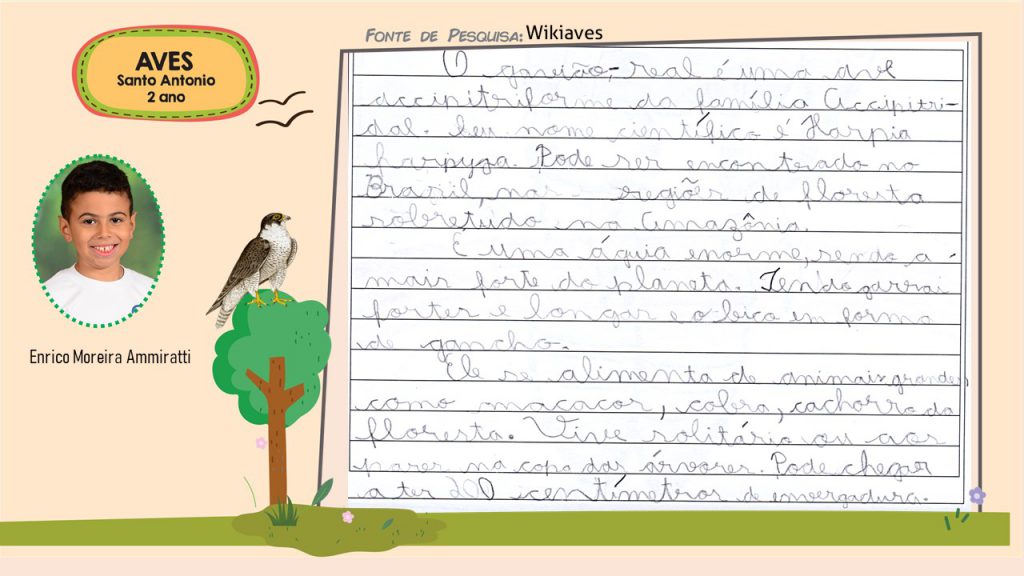 AVES
Santo Antonio
2 ano
Enrico Moreira Ammiratti
Fonte de Pesquisa: Wikiaves
O gavião-real é uma ave
accipitriforme da família Accipitri-
dal. Seu nome científico é Harpia
harpyga. Pode ser encontrado no
Brasil, nas regiões de floresta
sobretudo na Amazônia.
É uma águia enorme, sendo a
mais forte do planeta. Tendo garras
fortes e longas e o bico em forma
de gancho.
Ele se alimenta de animais grandes
como macacos, cobra, cachorro da
floresta. Vive solitário ou aos
pares na copa das árvores. Pode chegar
a ter 200 centímetros de envergadura.